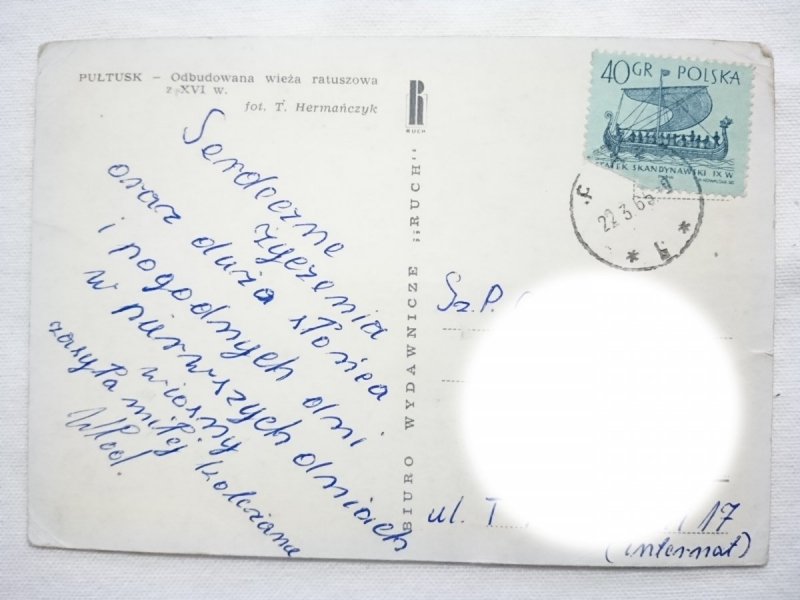 PUŁTUSK — Odbudowana wieża ratuszowa
z XVI w.
fot. T. Hermańczyk
Serdeczne
życzenia
oraz dużo słońca
i pogodnych dni
w pierwszych dniach
wiosny
zasyła miłej koleżance
Wład.
RUCH
BIURO WYDAWNICZE „RUCH"
40GR POLSKA
STATEK SKANDYNAWSKI IX W
22.3.65
Sz.P.
ul. T
17
(internat)